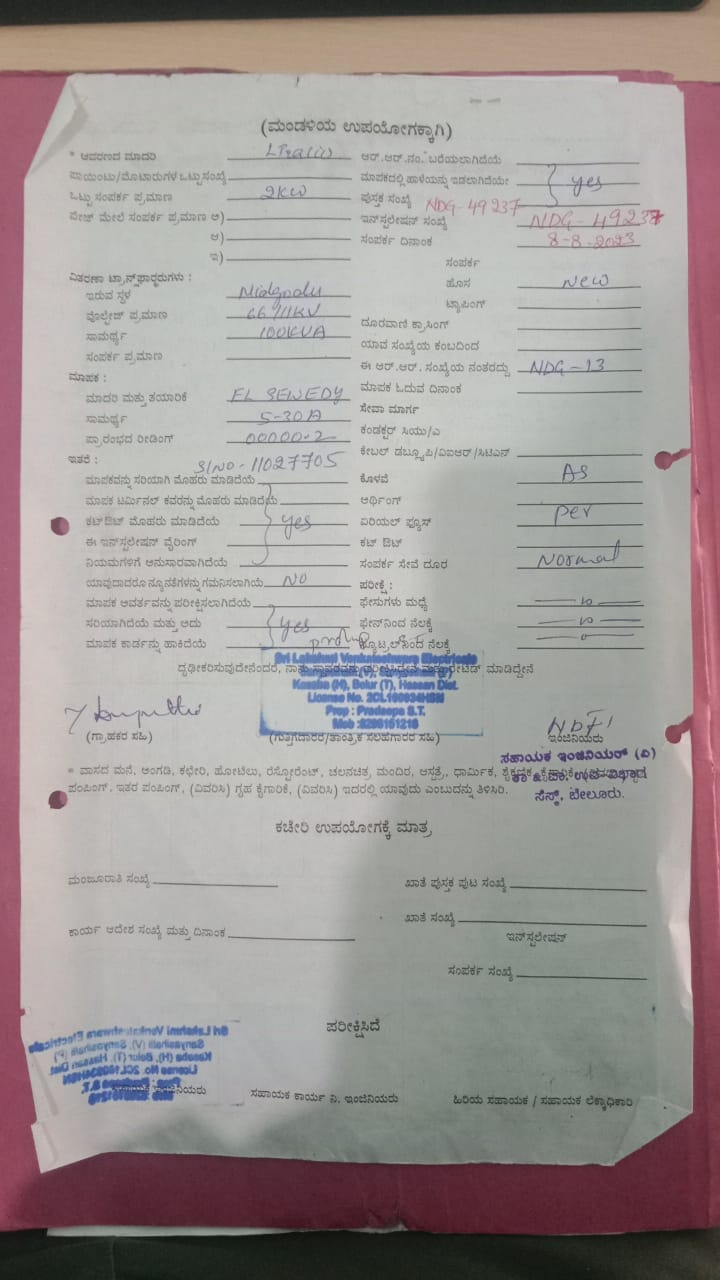 (ಮಂಡಳಿಯ ಉಪಯೋಗಕ್ಕಾಗಿ)
* ಆವರಣದ ಮಾದರಿ
ಪಾಯಿಂಟು/ಮೋಟಾರುಗಳ ಒಟ್ಟು ಸಂಖ್ಯೆ
ಒಟ್ಟು ಸಂಪರ್ಕ ಪ್ರಮಾಣ 2KW
ಪೇಜ್ ಮೇಲೆ ಸಂಪರ್ಕ ಪ್ರಮಾಣ ಅ)
ಆ)
ಇ)
ವಿತರಣಾ ಟ್ರಾನ್ಸ್‌ಫಾರ್ಮರುಗಳು :
ಇರುವ ಸ್ಥಳ
ವೋಲ್ಟೇಜ್ ಪ್ರಮಾಣ 66/11KV
ಸಾಮರ್ಥ್ಯ 100KVA
ಸಂಪರ್ಕ ಪ್ರಮಾಣ
ಮಾಪಕ :
ಮಾದರಿ ಮತ್ತು ತಯಾರಿಕೆ EL SEWEDY
ಸಾಮರ್ಥ್ಯ 5-30A
ಪ್ರಾರಂಭದ ರೀಡಿಂಗ್ 00000-2
ಇತರೆ : Sl NO-11027705
ಮಾಪಕವನ್ನು ಸರಿಯಾಗಿ ಮೊಹರು ಮಾಡಿದೆಯೆ
ಮಾಪಕ ಟರ್ಮಿನಲ್ ಕವರನ್ನು ಮೊಹರು ಮಾಡಿದೆಯೆ
ಕಟ್‌ಔಟ್ ಮೊಹರು ಮಾಡಿದೆಯೆ yes
ಈ ಇನ್‌ಸ್ಟಲೇಷನ್ ವೈರಿಂಗ್
ನಿಯಮಗಳಿಗೆ ಅನುಸಾರವಾಗಿದೆಯೆ
ಯಾವುದಾದರೂ ನ್ಯೂನತೆಗಳನ್ನು ಗಮನಿಸಲಾಗಿಯೆ NO
ಮಾಪಕ ಆವರ್ತವನ್ನು ಪರೀಕ್ಷಿಸಲಾಗಿದೆಯೆ
ಸರಿಯಾಗಿದೆಯೆ ಮತ್ತು ಅದು yes
ಮಾಪಕ ಕಾರ್ಡನ್ನು ಹಾಕಿದೆಯೆ
ಆರ್.ಆರ್.ನಂ. ಬರೆಯಲಾಗಿದೆಯೆ
ಮಾಪಕದಲ್ಲಿ ಹಾಳೆಯನ್ನು ಇಡಲಾಗಿದೆಯೇ yes
ಪುಸ್ತಕ ಸಂಖ್ಯೆ NDG-49237
ಇನ್‌ಸ್ಟಲೇಷನ್ ಸಂಖ್ಯೆ NDG-49237
ಸಂಪರ್ಕ ದಿನಾಂಕ 8-8-2023
ಸಂಪರ್ಕ
ಹೊಸ New
ಟ್ಯಾಪಿಂಗ್
ದೂರವಾಣಿ ಕ್ರಾಸಿಂಗ್
ಯಾವ ಸಂಖ್ಯೆಯ ಕಂಬದಿಂದ
ಈ ಆರ್.ಆರ್. ಸಂಖ್ಯೆಯ ನಂತರದ್ದು NDG-13
ಮಾಪಕ ಓದುವ ದಿನಾಂಕ
ಸೇವಾ ಮಾರ್ಗ
ಕಂಡಕ್ಟರ್ ಸಿಯು/ಎ
ಕೇಬಲ್ ಡಬ್ಲ್ಯೂಪಿ/ವಿಐಆರ್/ಸಿಟಿಎಸ್
ಕೊಳವೆ As
ಅರ್ಥಿಂಗ್
ಏರಿಯಲ್ ಫ್ಯೂಸ್ per
ಕಟ್ ಔಟ್
ಸಂಪರ್ಕ ಸೇವೆ ದೂರ Normal
ಪರೀಕ್ಷೆ :
ಫೇಸುಗಳು ಮಧ್ಯೆ
ಫೇಸ್‌ನಿಂದ ನೆಲಕ್ಕೆ
ನ್ಯೂಟ್ರಲ್‌ನಿಂದ ನೆಲಕ್ಕೆ
ದೃಢೀಕರಿಸುವುದೇನೆಂದರೆ, ನಾನು ಮಾಡಿದ್ದೇನೆ
Sri Lakshmi Venkateshwara Electricals
Kasaba (H), Belur (T), Hassan Dist.
License No. 2CL190934HSN
Prop : Pradeepa S.T.
(ಗ್ರಾಹಕರ ಸಹಿ)
(ಗುತ್ತಿಗೆದಾರರ/ತಾಂತ್ರಿಕ ಸಲಹೆಗಾರರ ಸಹಿ)
ಇಂಜಿನಿಯರು
ಸಹಾಯಕ ಇಂಜಿನಿಯರ್ (ವಿ)
ಕಾ & ಪಾ. ಉಪ ವಿಭಾಗ
ಸೆಸ್ಕ್, ಬೇಲೂರು.
* ವಾಸದ ಮನೆ, ಅಂಗಡಿ, ಕಛೇರಿ, ಹೋಟೆಲು, ರೆಸ್ಟೋರೆಂಟ್, ಚಲನಚಿತ್ರ ಮಂದಿರ, ಆಸ್ಪತ್ರೆ, ಧಾರ್ಮಿಕ,
ಪಂಪಿಂಗ್, ಇತರ ಪಂಪಿಂಗ್, (ವಿವರಿಸಿ) ಗೃಹ ಕೈಗಾರಿಕೆ, (ವಿವರಿಸಿ) ಇದರಲ್ಲಿ ಯಾವುದು ಎಂಬುದನ್ನು ತಿಳಿಸಿರಿ.
ಕಚೇರಿ ಉಪಯೋಗಕ್ಕೆ ಮಾತ್ರ
ಮಂಜೂರಾತಿ ಸಂಖ್ಯೆ
ಖಾತೆ ಪುಸ್ತಕ ಪುಟ ಸಂಖ್ಯೆ
ಖಾತೆ ಸಂಖ್ಯೆ
ಕಾರ್ಯ ಆದೇಶ ಸಂಖ್ಯೆ ಮತ್ತು ದಿನಾಂಕ
ಇನ್‌ಸ್ಟಲೇಷನ್
ಸಂಪರ್ಕ ಸಂಖ್ಯೆ
ಪರೀಕ್ಷಿಸಿದೆ
ಸಹಾಯಕ ಕಾರ್ಯ ನಿ. ಇಂಜಿನಿಯರು
ಹಿರಿಯ ಸಹಾಯಕ / ಸಹಾಯಕ ಲೆಕ್ಕಾಧಿಕಾರಿ